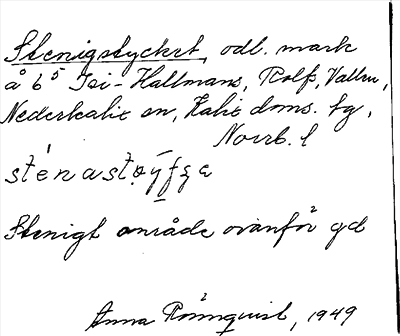 Stenigstycket, odl. mark
å 6⁵ Isi-Hallmans, Rolfs, Vallen,
Nederkalix sn, Kalix doms. tg,
Norrb. l
Stenigt område ovanför gd
Anna Rönnquist, 1949